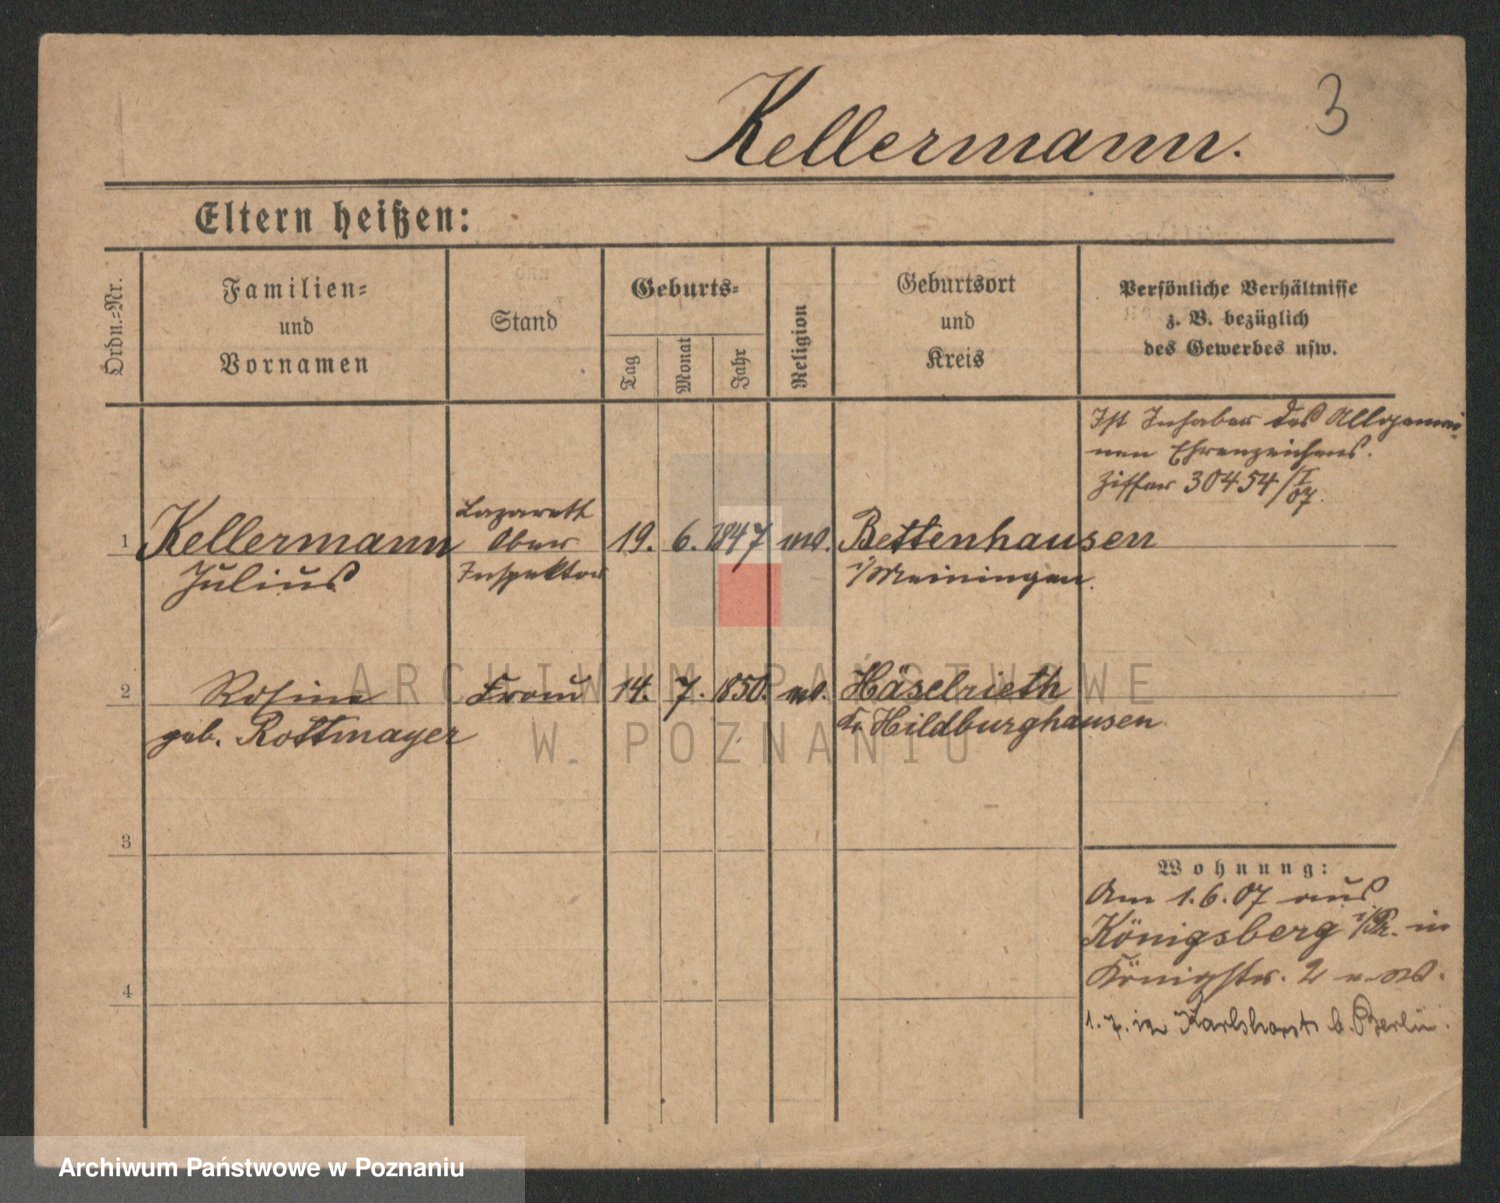 Kellermann.
3
Eltern heißen:
Ordn.-Nr.
Familien-
und
Vornamen
Stand
Geburts-
Tag
Monat
Jahr
Religion
Geburtsort
und
Kreis
Persönliche Verhältnisse
z. B. bezüglich
des Gewerbes usw.
Ist Inhaber des Allgemei-
nen Ehrenzeichens.
Ziffer 30454/I/07.
1 Kellermann Lazareth Ober Inspektor 19. 6. 1847 Bettenhausen
Julius i/Meiningen.
2 Rosine Frau 14. 7. 1850. Häselrieth
geb. Rottmayer Kr. Hildburghausen
3
4
Wohnung:
Am 1.6.07 aus
Königsberg i/Pr. in
Königstr. 2
1.7. in Karlshorst b. Berlin.
ARCHIWUM PAŃSTWOWE
W POZNANIU
Archiwum Państwowe w Poznaniu